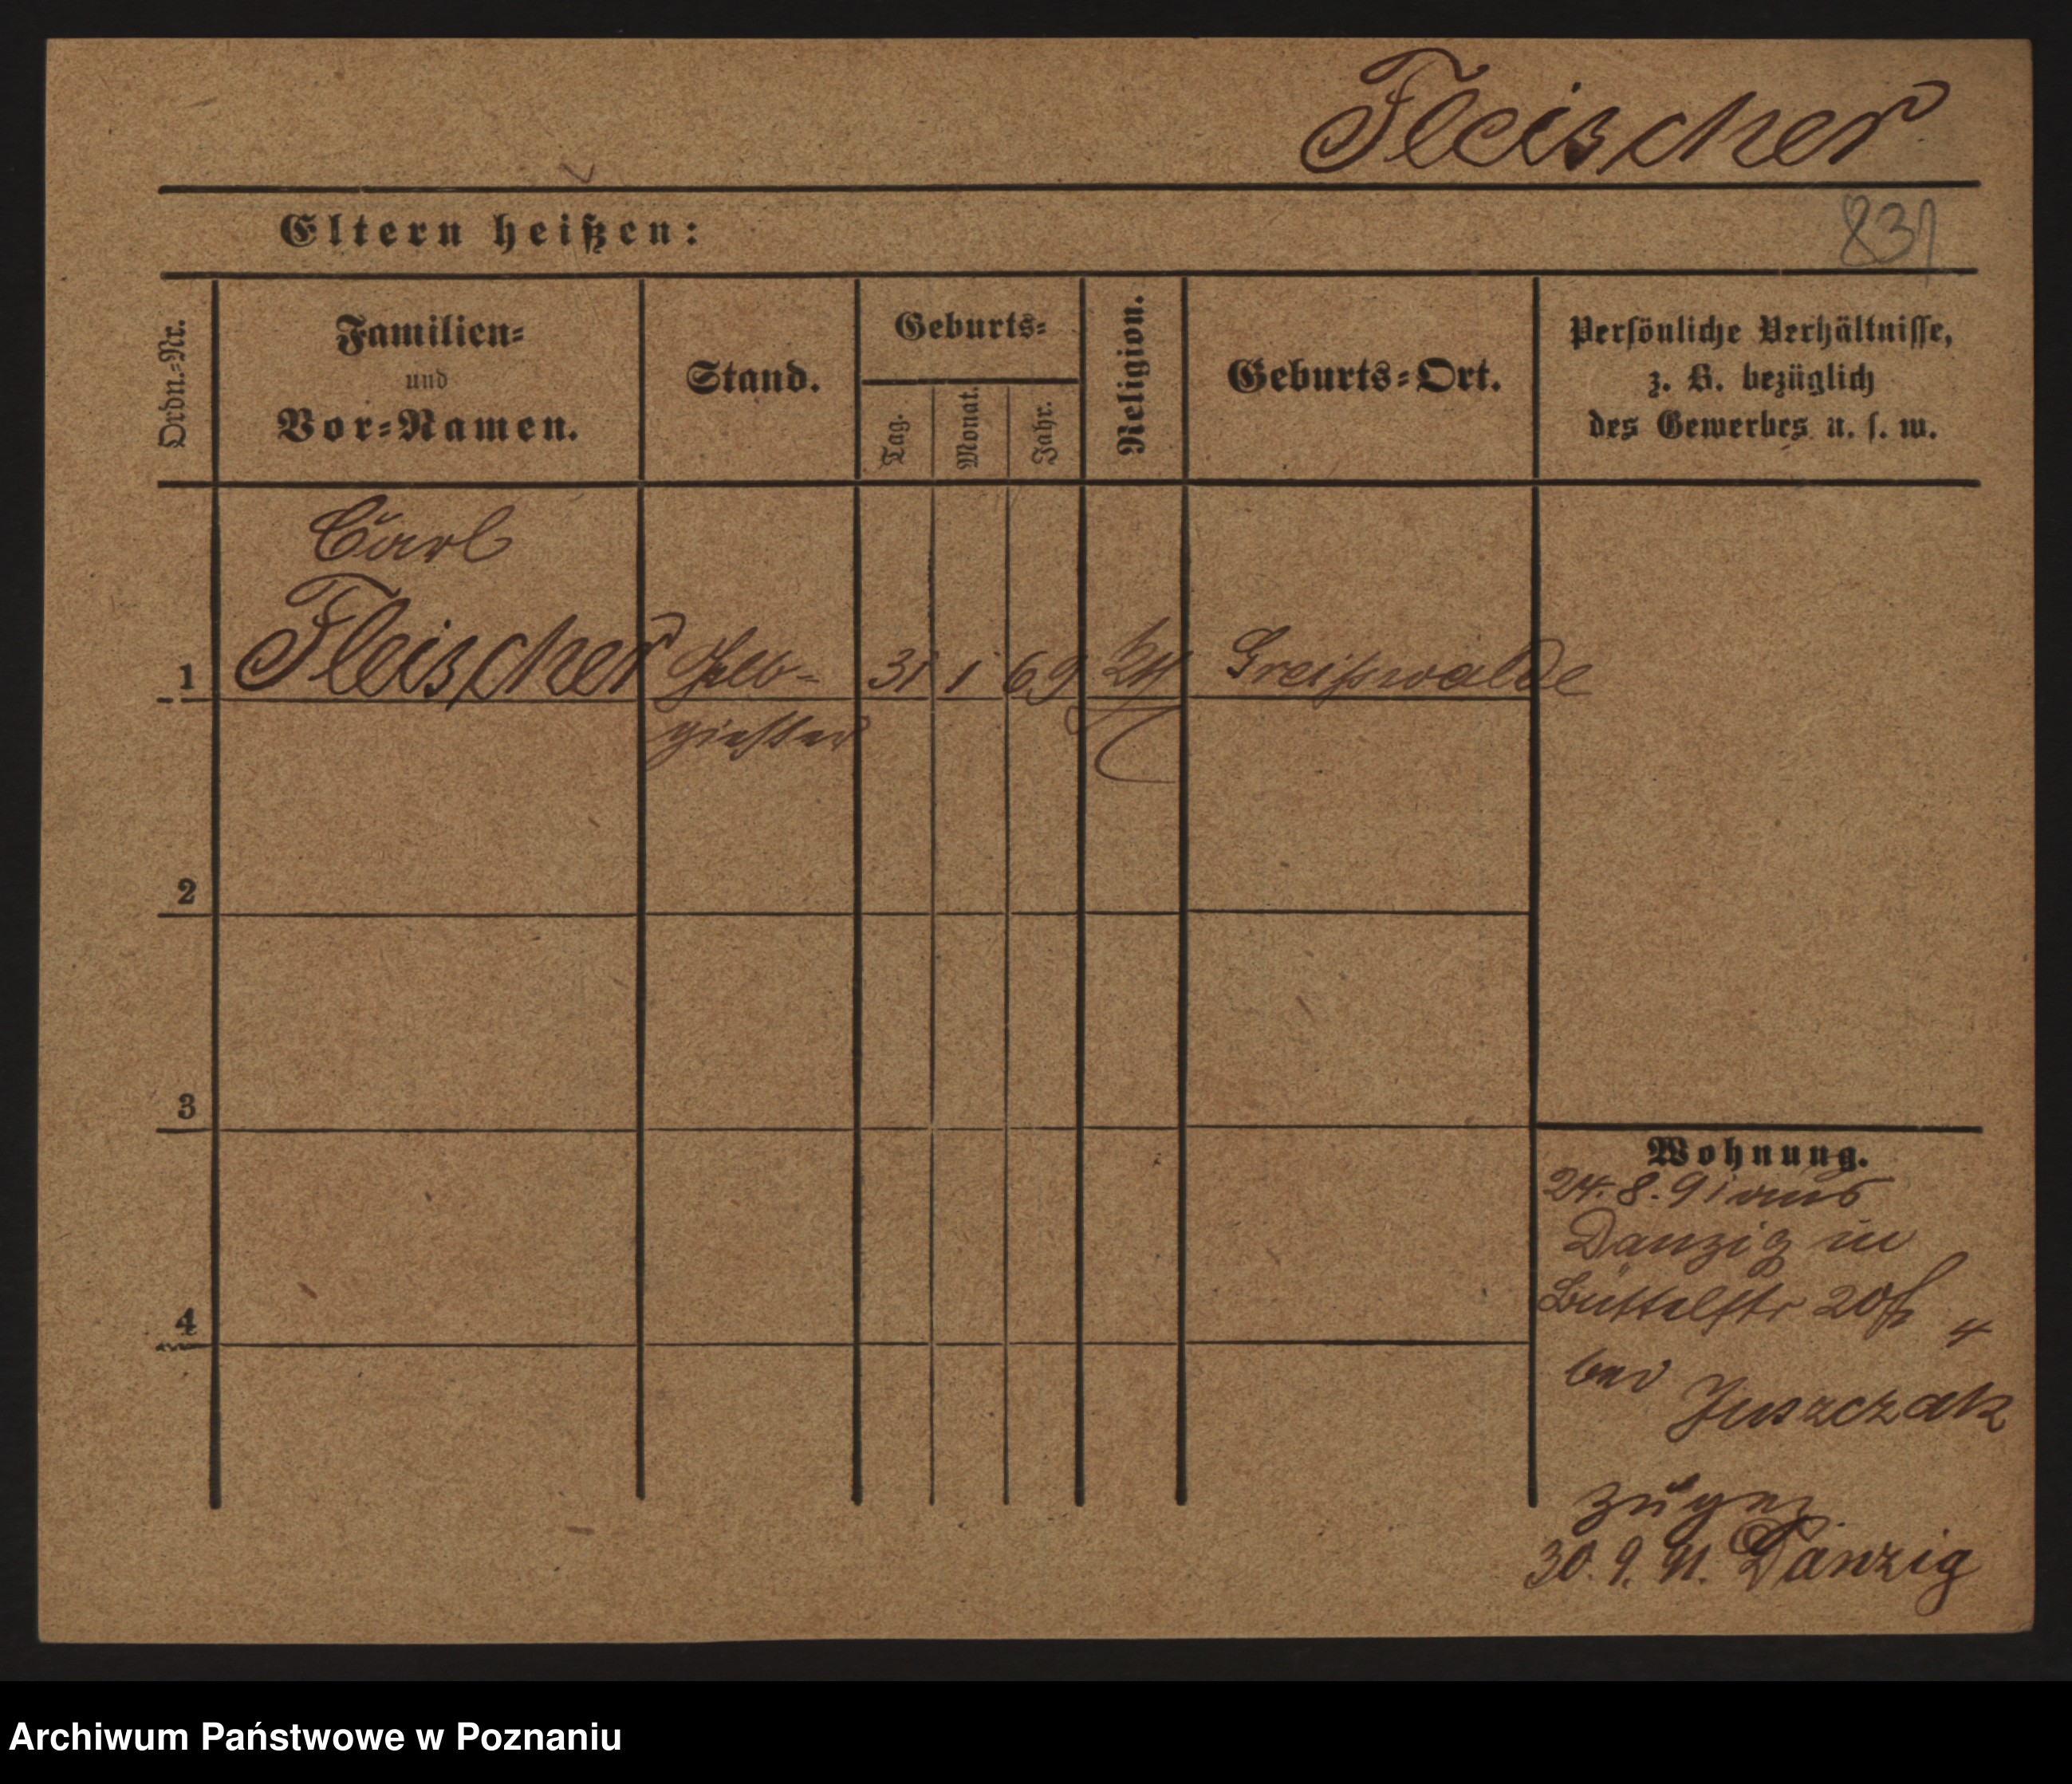 Fleischer
831
Eltern heißen:
Ordn.=Nr.
Familien=
und
Vor=Namen.
Stand.
Geburts=
Tag.
Monat.
Jahr.
Religion.
Geburts=Ort.
Persönliche Verhältnisse,
z. B. bezüglich
des Gewerbes u. s. w.
Carl
1 Fleischer Gelb= 31 1 69 Greifswalde
giesser
2
3
4
Wohnung.
24. 8. 91 aus
Danzig in
Büttelstr 20
4
bei
Juszczak
30. 9. 91. Danzig
Archiwum Państwowe w Poznaniu